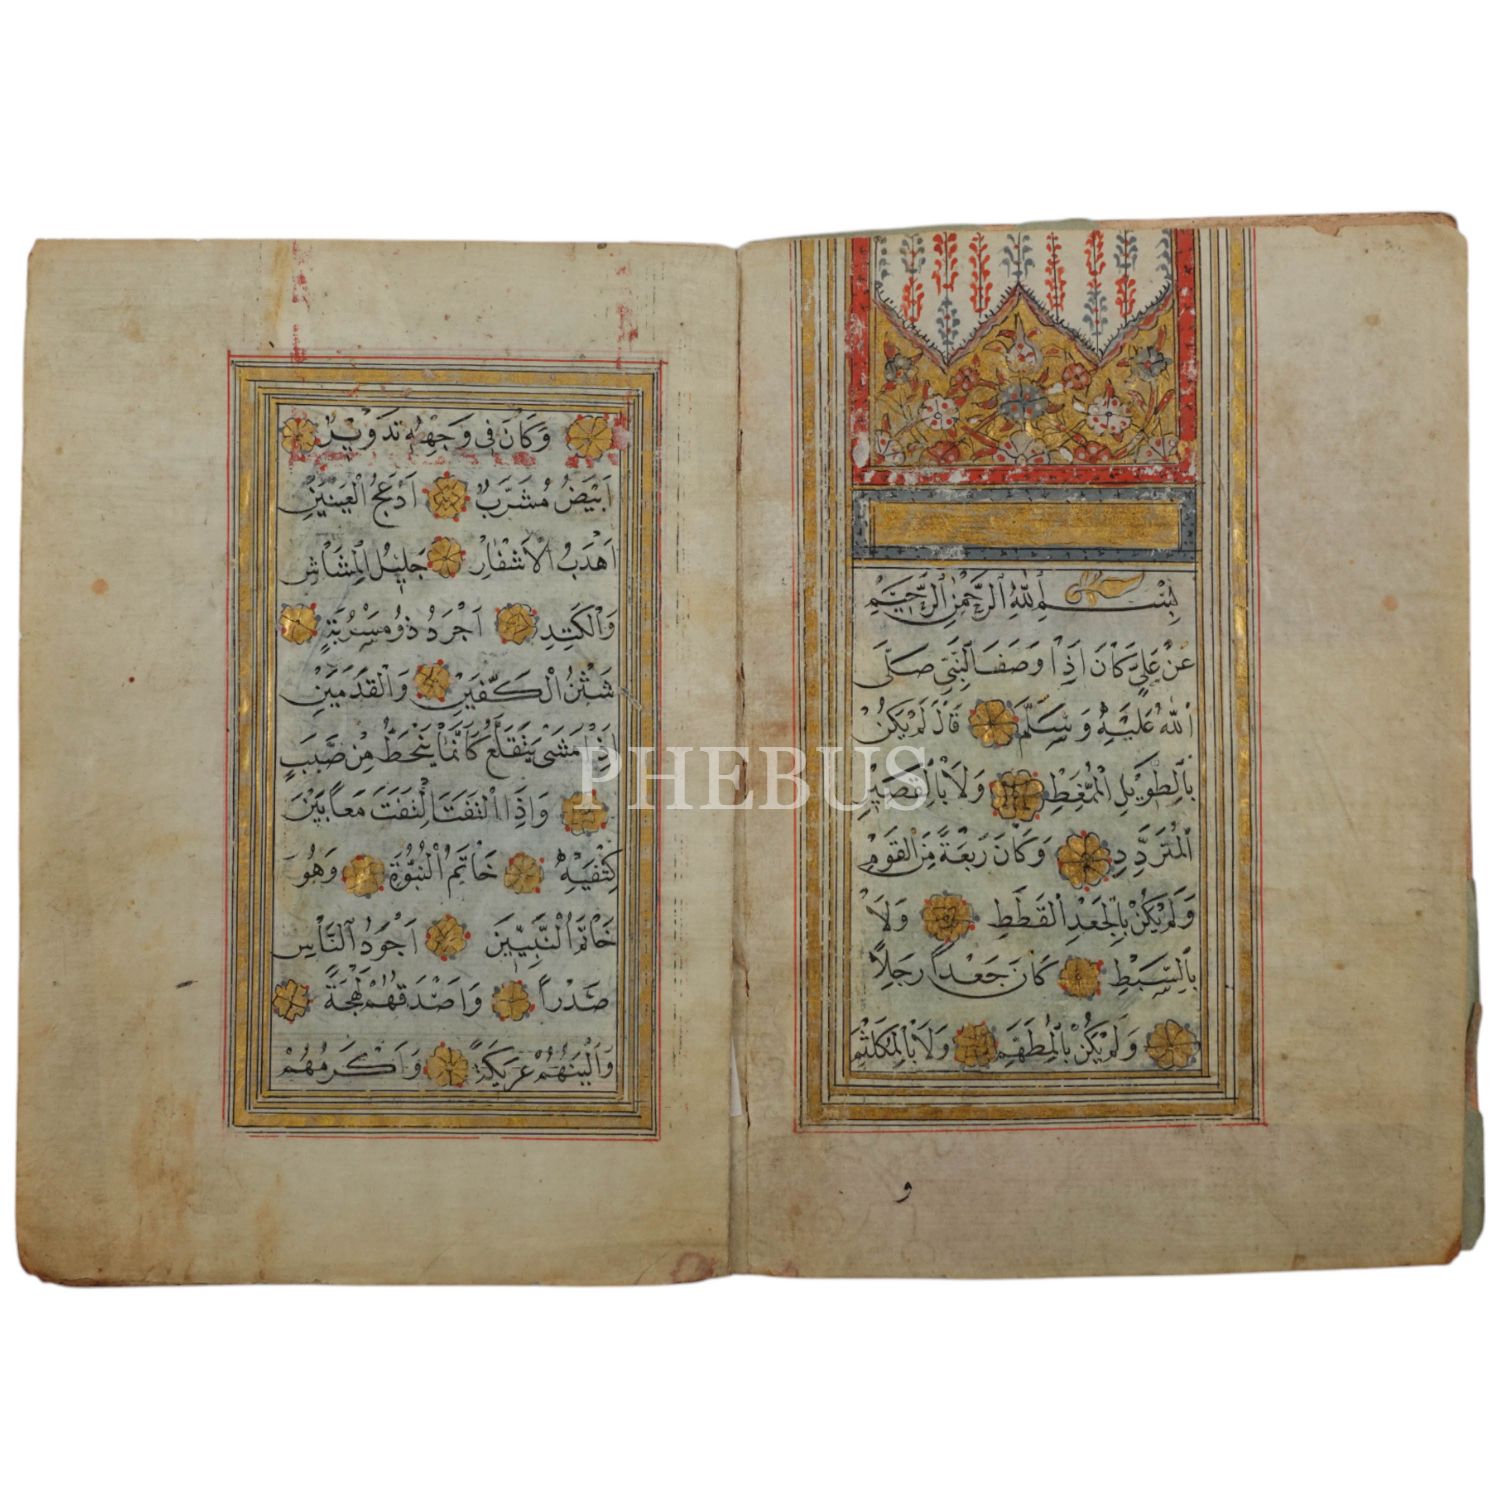 بِسْمِ اللّٰهِ الرَّحْمٰنِ الرَّحِيْمِ
عَنْ عَلِيٍّ كَانَ اِذَا وَصَفَ النَّبِيَّ صَلَّى
اللّٰهُ عَلَيْهِ وَسَلَّمَ قَالَ لَمْ يَكُنْ
بِالطَّوِيْلِ الْمُمَّغِطِ وَلَا بِالْقَصِيْرِ
الْمُتَرَدِّدِ وَكَانَ رَبْعَةً مِنَ الْقَوْمِ
وَلَمْ يَكُنْ بِالْجَعْدِ الْقَطَطِ وَلَا
بِالسَّبِطِ كَانَ جَعْداً رَجِلاً
وَلَمْ يَكُنْ بِالْمُطَهَّمِ وَلَا بِالْمُكَلْثَمِ
و
وَكَانَ فِي وَجْهِهِ تَدْوِيْرٌ
اَبْيَضُ مُشْرَبٌ اَدْعَجُ الْعَيْنَيْنِ
اَهْدَبُ الْاَشْفَارِ جَلِيْلُ الْمُشَاشِ
وَالْكَتَدِ اَجْرَدُ ذُو مَسْرُبَةٍ
شَثْنُ الْكَفَّيْنِ وَالْقَدَمَيْنِ
اِذَا مَشَى يَتَقَلَّعُ كَاَنَّمَا يَنْحَطُّ مِنْ صَبَبٍ
وَاِذَا الْتَفَتَ اِلْتَفَتَ مَعاً بَيْنَ
كِتْفَيْهِ خَاتَمُ النُّبُوَّةِ وَهُوَ
خَاتَمُ النَّبِيِّيْنَ اَجْوَدُ النَّاسِ
صَدْراً وَاَصْدَقُهُمْ لَهْجَةً
وَاَلْيَنُهُمْ عَرِيْكَةً وَاَكْرَمُهُمْ
PHEBUS